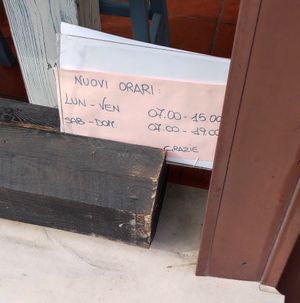 NUOVI ORARI:
LUN - VEN 07.00 - 15.00
SAB - DOM. 07.00 - 19.00
GRAZIE